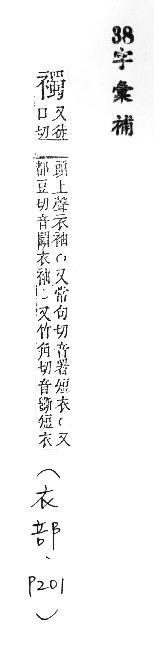 38字彙補
襡又徒口切頭上聲衣袖○又常句切音署短衣○又都豆切音鬭衣袖○又竹角切音斲短衣
(衣部、P201)